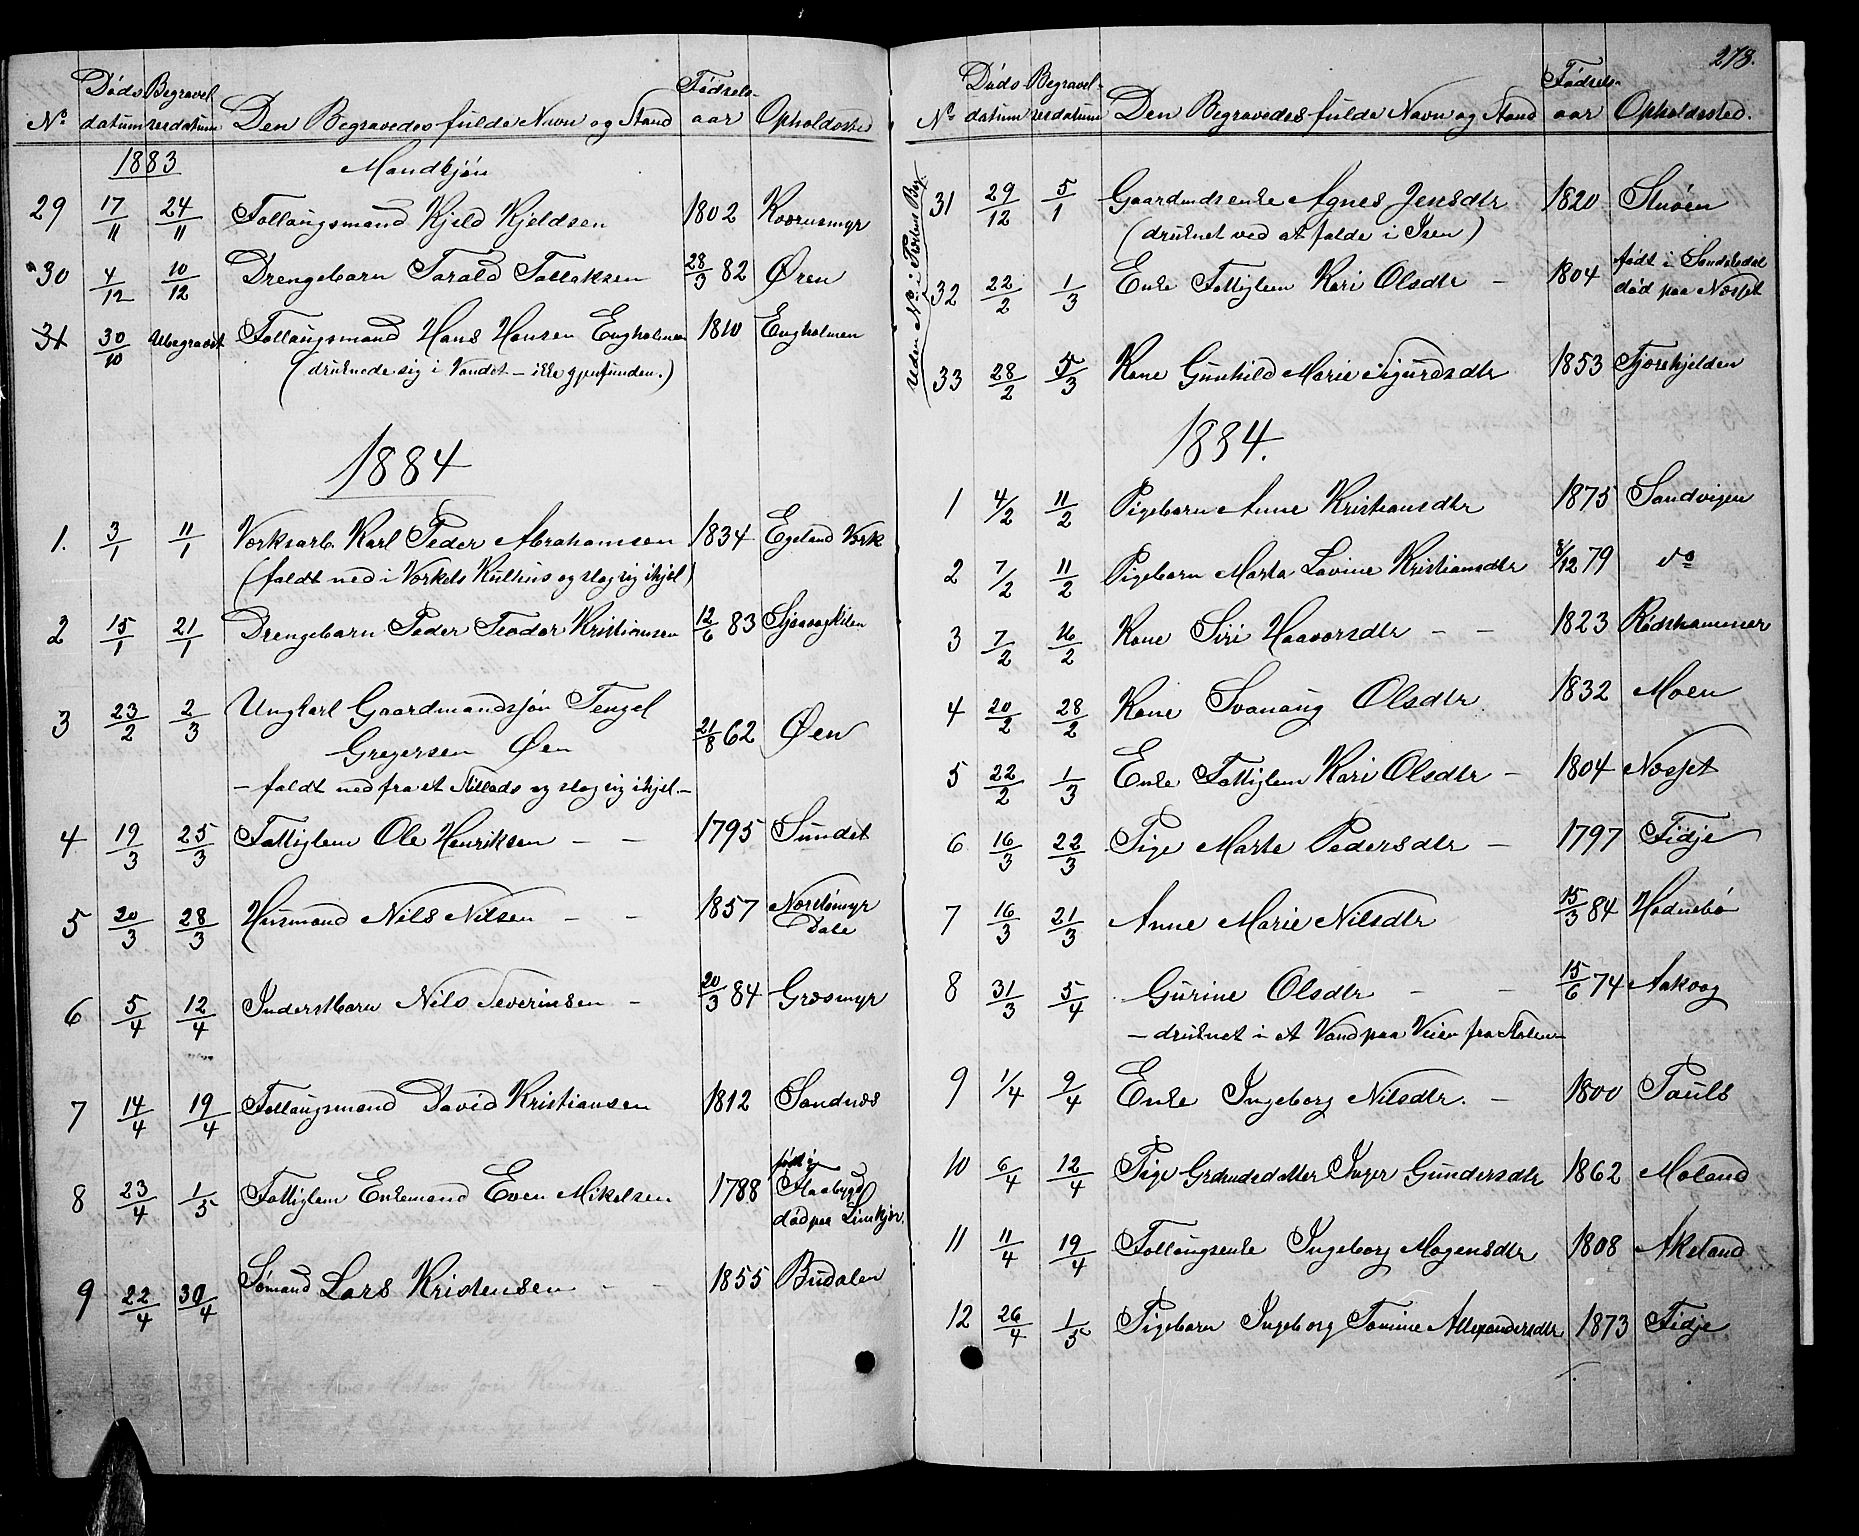 278.
Nº
Døds datum
Begravel sesdatum
Den Begravedes fulde Navn og Stand
Fødsels- aar
Opholdssted
1883
Mandkjøn
29 17/11 24/11 Follaugsmand Kjeld Kjeldsen 1802
30 4/12 10/12 Drengebarn Tarald Tallaksen 28/3 82 Øren
31 30/10 Ubegravet Follaugsmand Hans Hansen Engholmen 1810 Engholmen
(druknede sig i Vandet - ikke gjenfunden.)
1884
1. 3/1 11/1 Værksarb. Karl Peder Abrahamsen 1834 Egeland Værk
(faldt ned i Værkets Kulhus og slog sig ihjel)
2 15/1 21/1 Drengebarn Peder Teodor Kristiansen 12/6 83
3 23/2 2/3 Ungkarl Gaardmandssøn Tengel
Gregersen Øen 21/8 62 Øen
- faldt ned fra et Stillads og slog sig ihjel. -
4 19/3 25/3 Fattiglem Ole Henriksen - - 1795 Sundet
5 20/3 28/3 Husmand Nils Nilsen - - 1857
Dale
6 5/4 12/4 Inderstbarn Nils Severinsen - 20/3 84 Græsmyr
7 14/4 19/4 Follaugsmand David Kristiansen 1812 Sandnæs
8 23/4 1/5 Fattiglem Enkemand Even Mikelsen 1788 født i
død paa
9 22/4 30/4 Sømand Lars Kristensen - - 1855 Budalen
Nº
Døds datum
Begravel- sesdatum
Den Begravedes fulde Navn og Stand
Fødsels- aar
Opholdssted.
31 29/12 5/1 Gaardmdsenke Agnes Jensdtr 1820 Stuøen
(druknet ved at falde i Isen)
32 22/2 1/3 Enke Fattiglem Kari Olsdtr - 1804 født i Søndeled
død paa Næsset
33 28/2 5/3 Kone Gunhild Marie Sigurdsdtr 1853
1884.
1 4/2 11/2 Pigebarn Anne Kristiansdtr 1875 Sandvigen
2 7/2 11/2 Pigebarn Marta Lovine Kristiansdtr 8/12 79 do
3 7/2 16/2 Kone Siri Haavorsdtr - - 1823 Rødshammer
4 20/2 28/2 Kone Svanaug Olsdtr 1832 Moen
5 22/2 1/3 Enke Fattiglem Kari Olsdtr - 1804 Næsset
6 16/3 22/3 Pige Marte Pedersdtr - 1797 Fidje
7 16/3 21/3 Anne Marie Nilsdtr 15/3 84 Hødnebø
8 31/3 5/4 Gurine Olsdtr - - 15/6 74 Aakvog
- druknet i et Vand paa Veien fra Skolen -
9 1/4 9/4 Enke Ingeborg Nilsdtr. - 1800
10 6/4 12/4 Pige Grdmdsdatter Inger Gundersdtr 1862 Moland
11 11/4 19/4 Follaugsenke Ingeborg Mogensdtr 1808 Akeland
12 26/4 1/5 Pigebarn Ingeborg Tomine Allexandersdtr 1873 Fidje